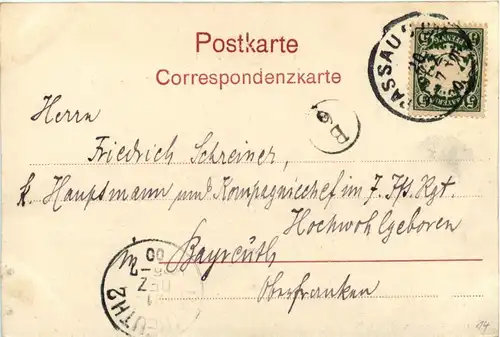 Postkarte
Correspondenzkarte
PASSAU
Bg.
Herrn
Friedrich Schreiner,
k. Hauptmann und Kompagniechef im 7. Jfs. Rgt.
Hochwohlgeboren
in Bayreuth
Oberfranken
00
DEZ
14